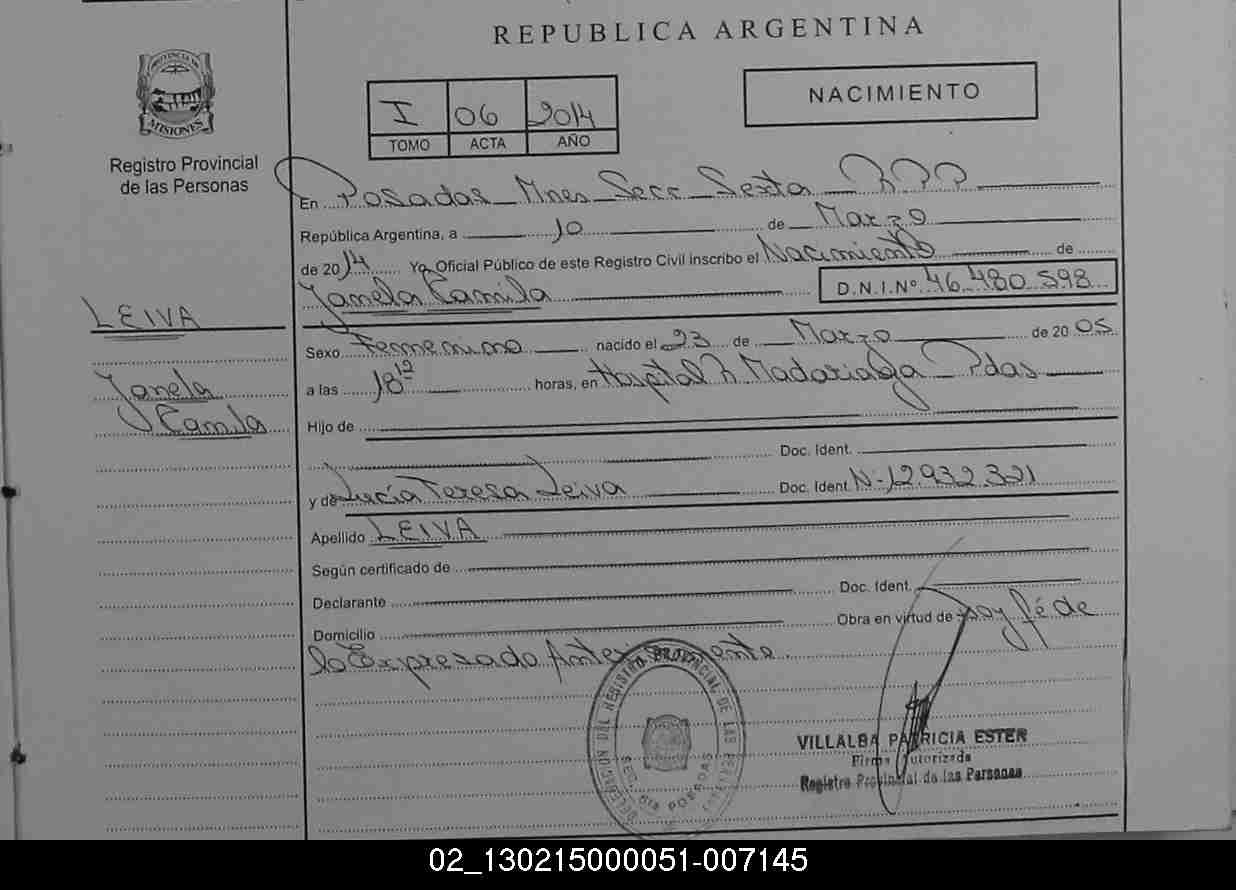 REPUBLICA ARGENTINA
PROVINCIA DE
MISIONES
Registro Provincial
de las Personas
I 06 2014
TOMO ACTA AÑO
NACIMIENTO
En Posadas Mnes Secc Sexta RPP
República Argentina, a 10 de Marzo
de 2014 Yo Oficial Público de este Registro Civil inscribo el Nacimiento de
Yanela Camila D.N.I.Nº 46.480.598
LEIVA
Yanela
Camila
Sexo Femenino nacido el 23 de Marzo de 2005
a las 18 12 horas, en Hospital R Madariaga Pdas
Hijo de
Doc. Ident.
y de Lucía Teresa Leiva Doc. Ident. Nº 12.932.321
Apellido LEIVA
Según certificado de
Declarante Doc. Ident.
Domicilio Obra en virtud de Doy fé de
lo Expresado Anteriormente
DELEGACION DEL REGISTRO PROVINCIAL DE LAS PERSONAS
SEC. 6ta POSADAS
VILLALBA PATRICIA ESTER
Firma Autorizada
Registro Provincial de las Personas
02_130215000051-007145